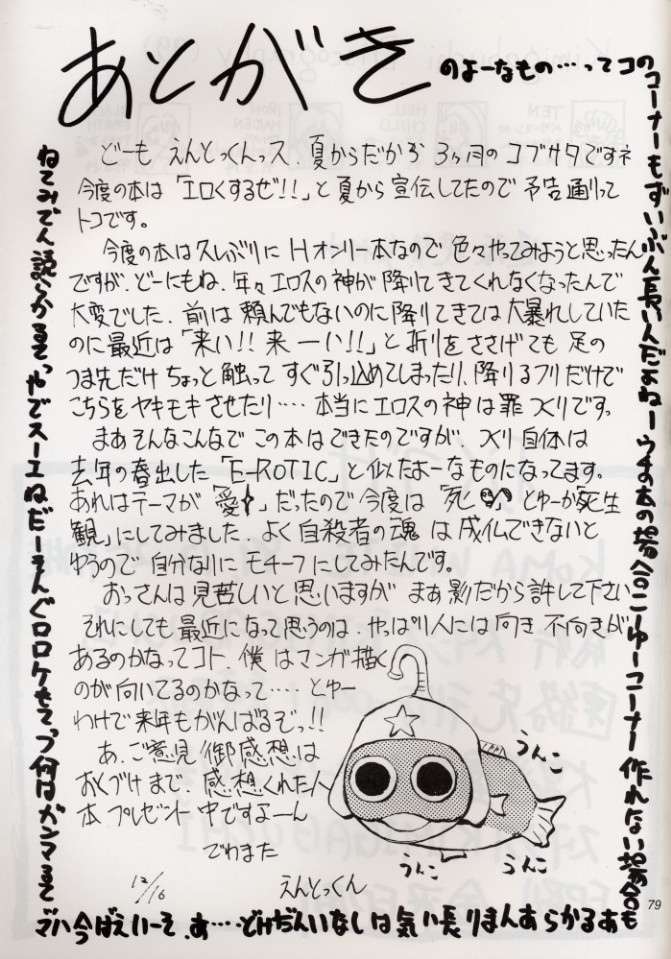 あとがき
のよーなもの…ってコのコーナーもずいぶん長いんだよねーウチの本の場合こーゆーコーナー作れない場合も
あるからあんまり長い気はしないんだけど…あ、そーいえば今
どーも えんとっくんっス。夏からだから 3ヶ月のゴブサタですネ
今度の本は「エロくするぜ!!」と夏から宣伝してたので予告通りって
トコです。
今度の本は久しぶりにHオンリー本なので色々やってみようと思ったん
ですが、どーにもね、年々エロスの神が降りてきてくれなくなったんで
大変でした。前は頼んでもないのに降りてきては大暴れしていた
のに最近は「来い!!来ーい!!」と祈りをささげても足の
つま先だけちょっと触ってすぐ引っ込めてしまったり、降りるフリだけで
こちらをヤキモキさせたり‥‥本当にエロスの神は罪つくりです。
まあそんなこんなでこの本はできたのですが、つくり自体は
去年の春出した「E-ROTIC」と似たよーなものになってます。
あれはテーマが「愛」だったので今度は「死」とゆーか「死生
観」にしてみました。よく自殺者の魂は成仏できないと
ゆうので自分なりにモチーフにしてみたんです。
おっさんは見苦しいと思いますがまあ影だから許して下さい
それにしても最近になって思うのは、やっぱり人には向き不向きが
あるのかなってコト。僕はマンガ描く
のが向いてるのかなって‥‥とゆー
わけで来年もがんばるぞっ!!
あ、ご意見御感想は
おくづけまで、感想くれた人
本プレゼント中ですよーん
でわまた
12/16 えんとっくん
うんこ
うんこ
うんこ
79